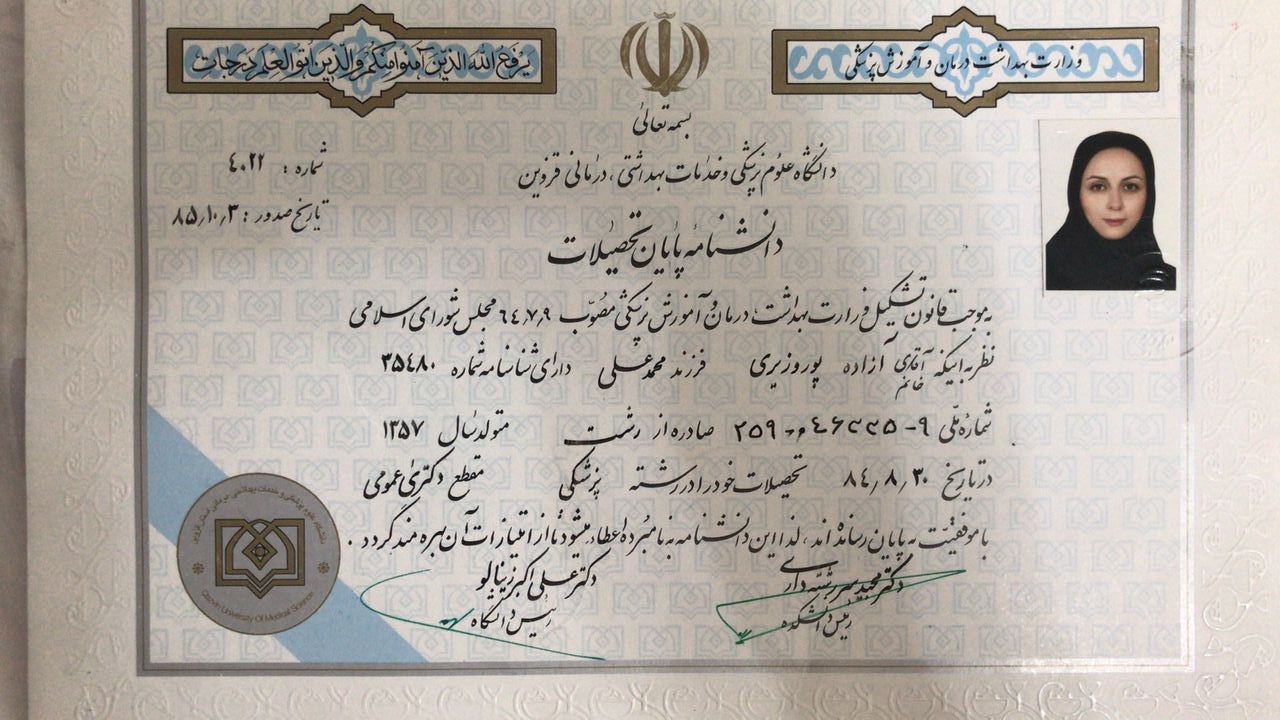 وزارت بهداشت درمان و آموزش پزشکی
یرفع الله الذین آمنوا منکم والذین اتوالعلم درجات
بسمه تعالی
دانشگاه علوم پزشکی و خدمات بهداشتی، درمانی قزوین
شماره : ۴۰۲۲
تاریخ صدور : ۸۵٫۱۰٫۳
دانشنامه پایان تحصیلات
به موجب قانون تشکیل وزارت بهداشت، درمان و آموزش پزشکی مصوب ۶۴٫۷٫۹ مجلس شورای اسلامی
نظر به اینکه آقای خانم آزاده پوروزیری فرزند محمدعلی دارای شناسنامه شماره ۳۵۴۸۰
شماره ملی صادره از رشت متولد سال ۱۳۵۷
در تاریخ ۸۴٫۸٫۳۰ تحصیلات خود را در رشته پزشکی مقطع دکترای عمومی
با موفقیت به پایان رسانده اند، لذا این دانشنامه به نامبرده اعطاء میشود تا از امتیازات آن بهره مند گردد .
دکتر مجید سررشته داری
رئیس دانشکده
دکتر علی اکبر زینالو
رئیس دانشگاه
Qazvin University Of Medical Science